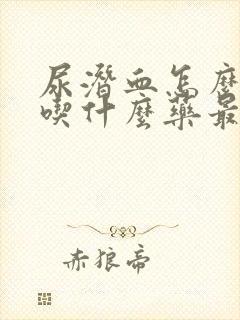 尿潛血怎麼
喫什麼藥最
赤狼帝